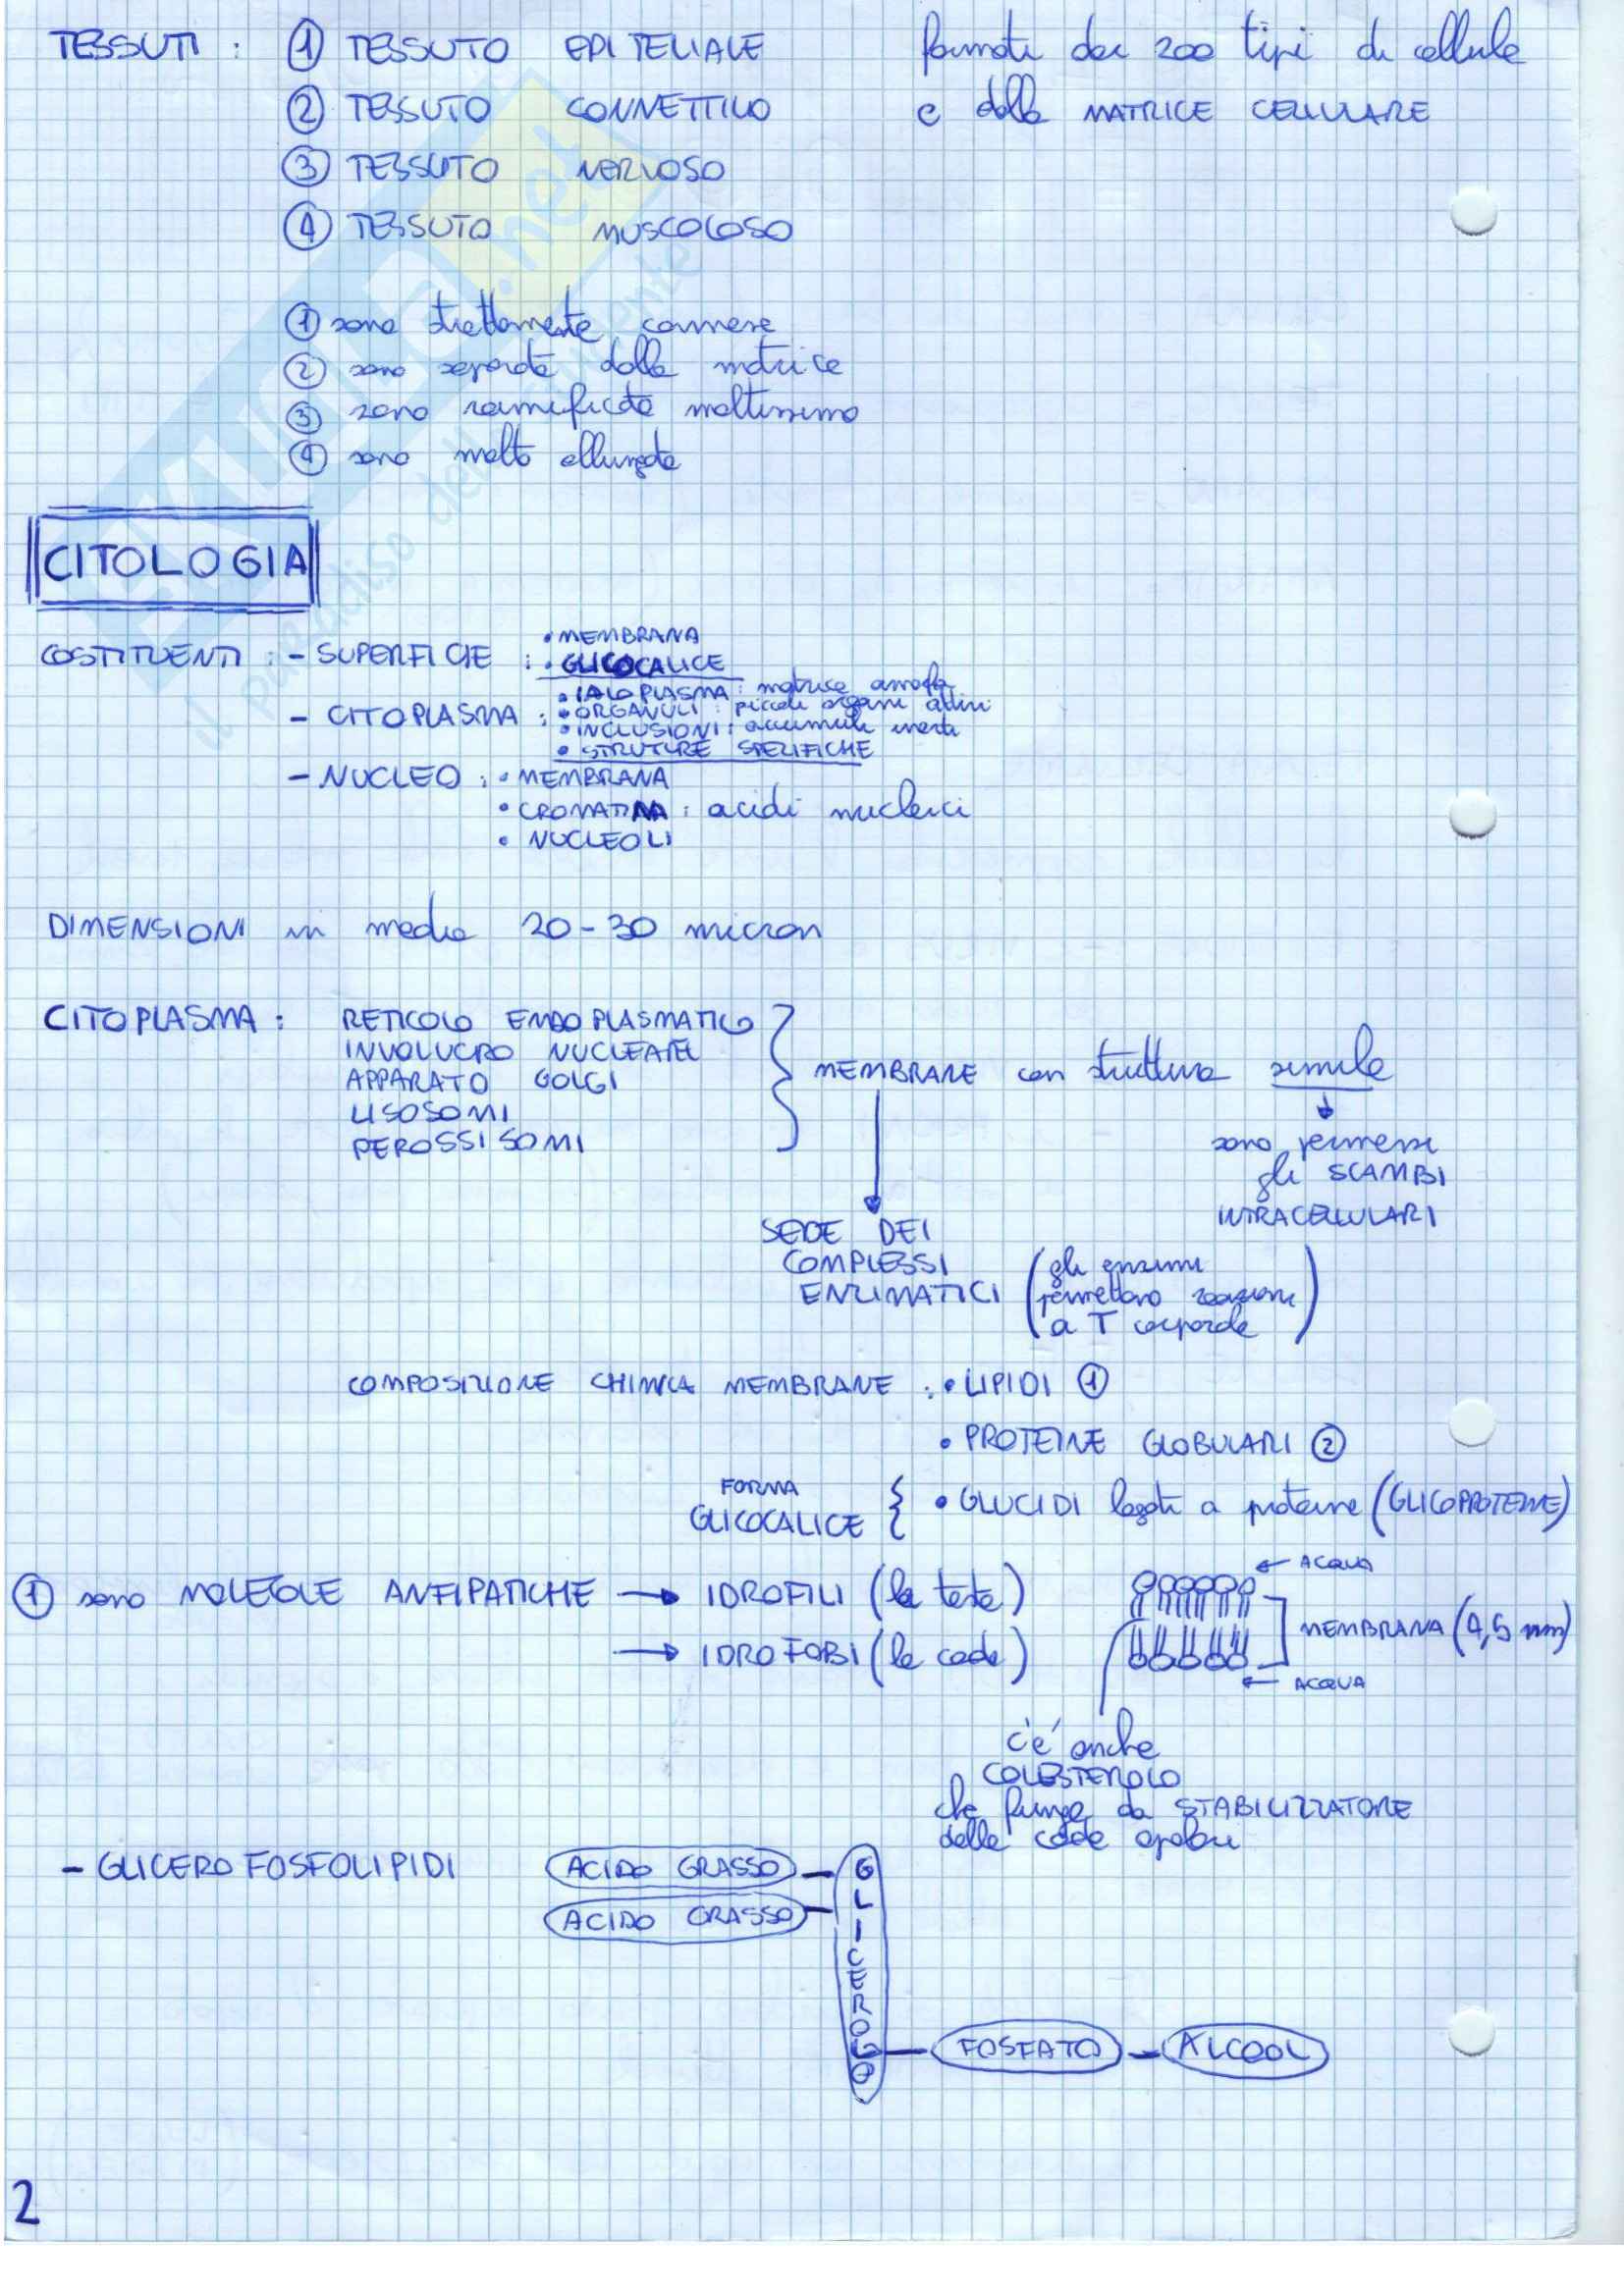 TESSUTI : ① TESSUTO EPITELIALE formati dai 200 tipi di cellule
② TESSUTO CONNETTIVO e dalla MATRICE CELLULARE
③ TESSUTO NERVOSO
④ TESSUTO MUSCOLOSO
① sono strettamente connesse
② sono separate dalla matrice
③ sono ramificate moltissimo
④ sono molto allungate
CITOLOGIA
COSTITUENTI : - SUPERFICIE : • MEMBRANA
• GLICOCALICE
- CITOPLASMA : • IALOPLASMA : matrice amorfa
• ORGANULI : piccoli organi attivi
• INCLUSIONI : accumuli inerti
• STRUTURE SPECIFICHE
- NUCLEO : • MEMBRANA
• CROMATINA : acidi nucleici
• NUCLEOLI
DIMENSIONI in media 20-30 micron
CITOPLASMA : RETICOLO ENDOPLASMATICO
INVOLUCRO NUCLEARE
APPARATO GOLGI
LISOSOMI
PEROSSISOMI
MEMBRANE con struttura simile
sono permessi
gli SCAMBI
INTRACELLULARI
SEDE DEI
COMPLESSI
ENZIMATICI (gli enzimi
permettono reazioni
a T corporale)
COMPOSIZIONE CHIMICA MEMBRANE : • LIPIDI ①
• PROTEINE GLOBULARI ②
FORMA
GLICOCALICE { • GLUCIDI legati a proteine (GLICOPROTEINE)
① sono MOLECOLE ANFIPATICHE → IDROFILI (le teste)
→ IDROFOBI (le code)
← ACQUA
MEMBRANA (4,5 nm)
← ACQUA
c'é anche
COLESTEROLO
che funge da STABILIZZATORE
delle code apolari
- GLICEROFOSFOLIPIDI ACIDO GRASSO
ACIDO GRASSO
GLICEROLO
FOSFATO - ALCOOL
2